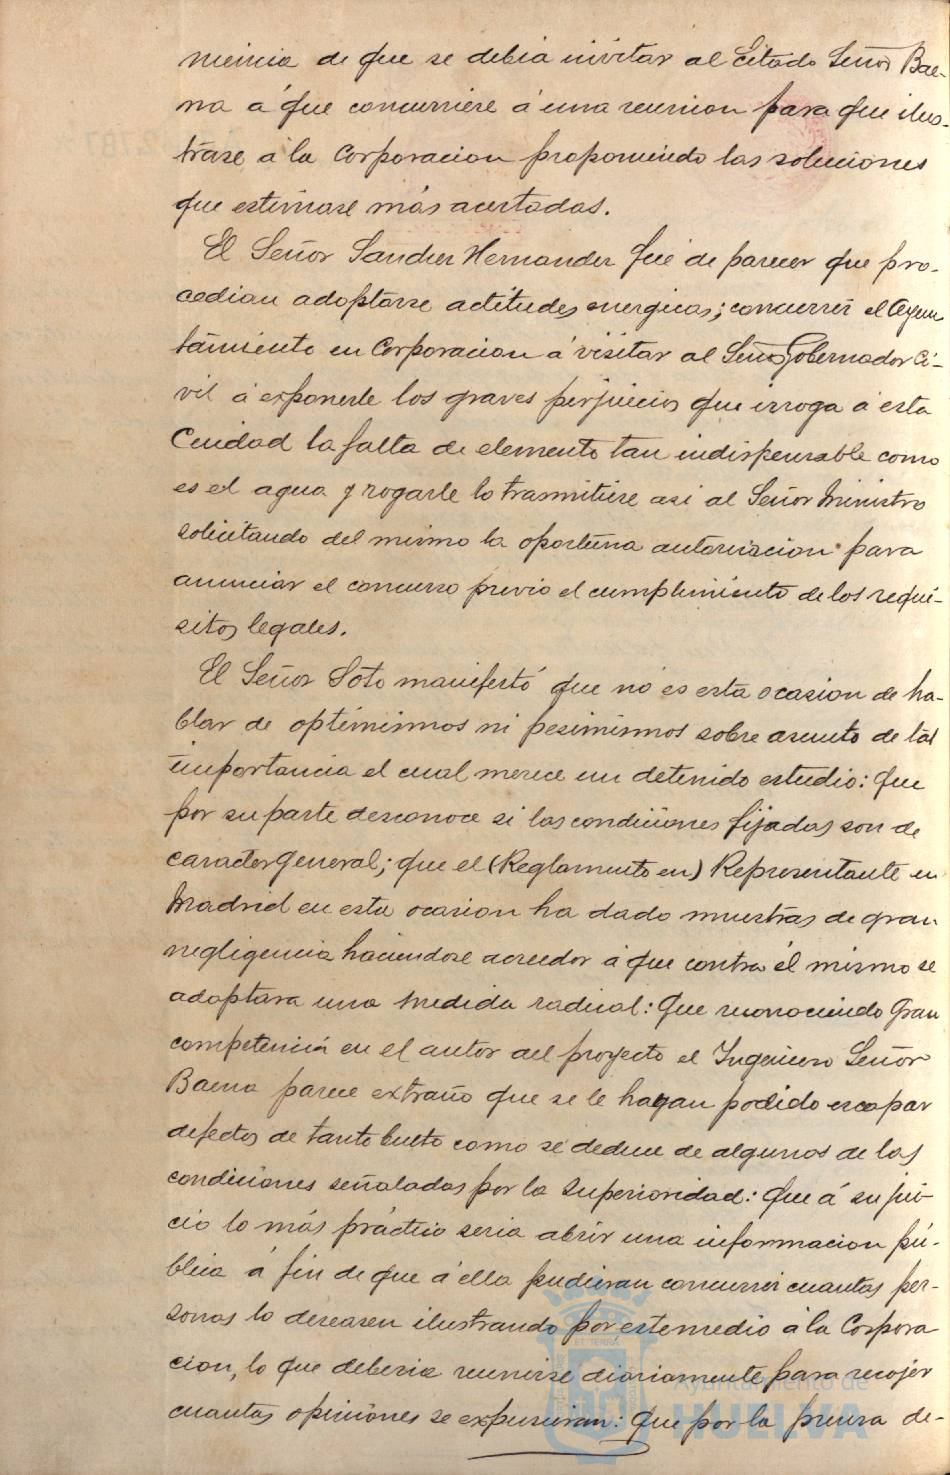 niencia de que se debia invitar al Citado Señor Bae-
na á que concurriese á una reunion para que ilus-
trase á la Corporacion proponiendo las soluciones
que estimase más acertadas.
El Señor Sanchez Hernandez fué de parecer que pro-
cedian adoptarse actitudes energicas; concurrir el Ayun
tamiento en Corporacion á visitar al Señor Gobernador Ci-
vil á exponerle los graves perjuicios que irroga á esta
Ciudad la falta de elemento tan indispensable como
es el agua y rogarle lo trasmitiese asi al Señor Ministro
solicitando del mismo la oportuna autorizacion para
anunciar el concurso previo el cumplimiento de los requi-
sitos legales.
El Señor Soto manifestó que no es esta ocasion de ha-
blar de optimismos ni pesimismos sobre asunto de tal
importancia el cual merece un detenido estudio: que
por su parte desconoce si las condiciones fijadas son de
caracter general; que el (Reglamento en) Representante en
Madrid en esta ocasion ha dado muestras de gran
negligencia haciendose acreedor á que contra él mismo se
adoptara una medida radical: Que reconociendo gran
competencia en el autor del proyecto el Ingeniero Señor
Baena parece extraño que se le hayan podido escapar
defectos de tanto bulto como se deduce de algunos de las
condiciones señaladas por la Superioridad: Que á su jui-
cio lo más práctico seria abrir una informacion pú-
blica á fin de que á ella pudieran concurrir cuantas per-
sonas lo deseasen ilustrando por este medio á la Corpora
cion, lo que deberia reunirse diariamente para recojer
cuantas opiniones se expusieran: Que por la prensa de-
Ayuntamiento de
HUELVA